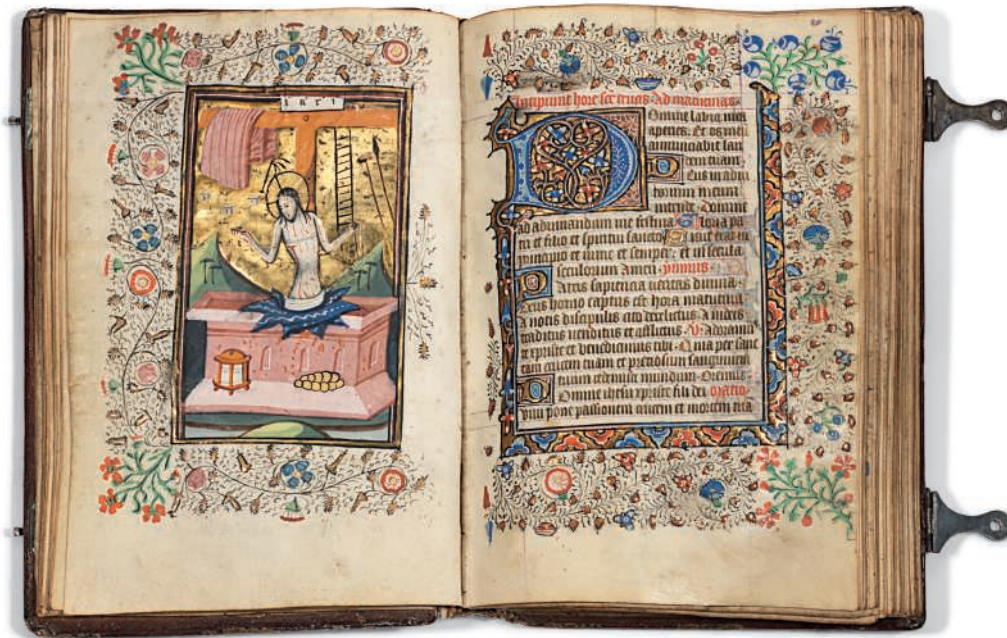 INRI
Incipiunt hore scē crucis. Ad matutinas.
Domine labia mea
aperies. Et os meū
annunciabit lau
dem tuam.
Deus in adiu
torium meum
intende. Domine
ad adiuuandum me festina. Gloria pa
tri et filio et spiritui sancto. Sicut erat in
principio et nunc et semper: et in secula
seculorum Amen. ymnus.
Patris sapiencia ueritas diuina.
Deus homo captus est hora matutina
a notis discipulis cito derelictus. A iudeis
traditus uenditus et afflictus. V. Adoramus
te xpriste et benedicimus tibi. Quia per sanc
tam crucem tuam et preciosum sanguinem
tuum redemisti mundum. Oremus
Domine ihesu xpriste fili dei oratio
uiui pone passionem crucem et mortem tuā